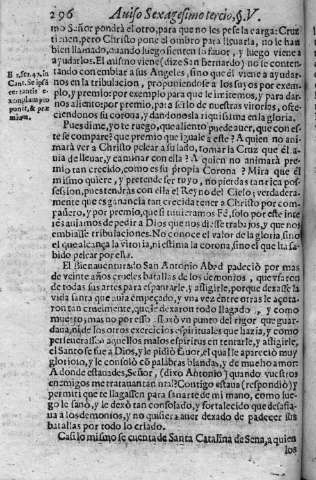 296 Auiso Sexagesimo tercio, §. V.
mo Señor pondrà el otro, para que no les pese la carga: Cruz
tienen, pero Christo pone el ombro para lleuarla, no le han
bien llamado, quando luego sienten la fauor, y luego viene à
ayudarlos. El mismo viene (dize San Bernardo) no se conten-
tando con embiar a sus Angeles, sino que èl viene a ayudar-
nos en la tribulacion, proponiendose a los suyos por exem-
plo, y premio: por exemplo para que le imitemos, y para dar-
nos aliento: por premio, para serlo de nuestras vitorios, ofre-
ciendonos su corona, y dandonosla riquissima en la gloria.
B. ser. 47. in
Cant. Se ipsũ
certantis e-
xemplum pro
ponit, & præ
mium.
Pues dime, yo te ruego, que aliento puede auer, que con es-
te se compare? que premio que iguale à este? A quien no ani-
marà ver a Christo pelear a su lado, tomar la Cruz que èl a-
uia de lleuar, y caminar con ella? A quien no animarà pre-
mio tan crecido, como es su propia Corona? Mira que èl
mismo quiere, y pretende ser tuyo, no pierdas tan rica pos-
session, pues tendràs con ella el Reyno del Cielo; verdadera-
mente que es ganancia tan crecida tener a Christo por com-
pañero, y por premio, que si tuuieramos Fè, solo por este inte-
rès auiamos de pedir a Dios que nos diesse trabajos, y que nos
embiasse tribulaciones. No conoce el valor de la gloria, sino
el que alcança la vitoria, ni estima la corona, sino el que ha sa-
bido pelear por ella.
El Bienauenturado San Antonio Abad padeciò por mas
de veinte años crueles batallas de los demonios, que vsaron
de todas sus artes para espantarle, y afligirle, porque dexasse la
vida santa que auia empeçado, y vna vez entre otras le açota-
ron tan cruelmente, que le dexaron todo llagado, y como
muerto; mas no por esso dexò vn punto del rigor que guar-
daua, ni de los otros exercicios espirituales que hazia, y como
perseuerassen aquellos malos espiritus en tentarle, y afligirle,
el Santo se fue a Dios, y le pidiò fauor, el qual le apareciò muy
glorioso, y le consolò cõ palabras blandas, y de mucho amor:
A donde estauades, Señor, (dixo Antonio) quando vuestros
enemigos me tratauan tan mal? Contigo estaua (respondiò) y
permitì que te llagassen para sanarte de mi mano, como lue-
go le sanò, y le dexò tan consolado, y fortalecido que desafia-
ua a los demonios, y no quisiera auer dexado de padecer sus
batallas por todo lo criado.
Casi lo mismo se cuenta de Santa Catalina de Sena, a quien
los